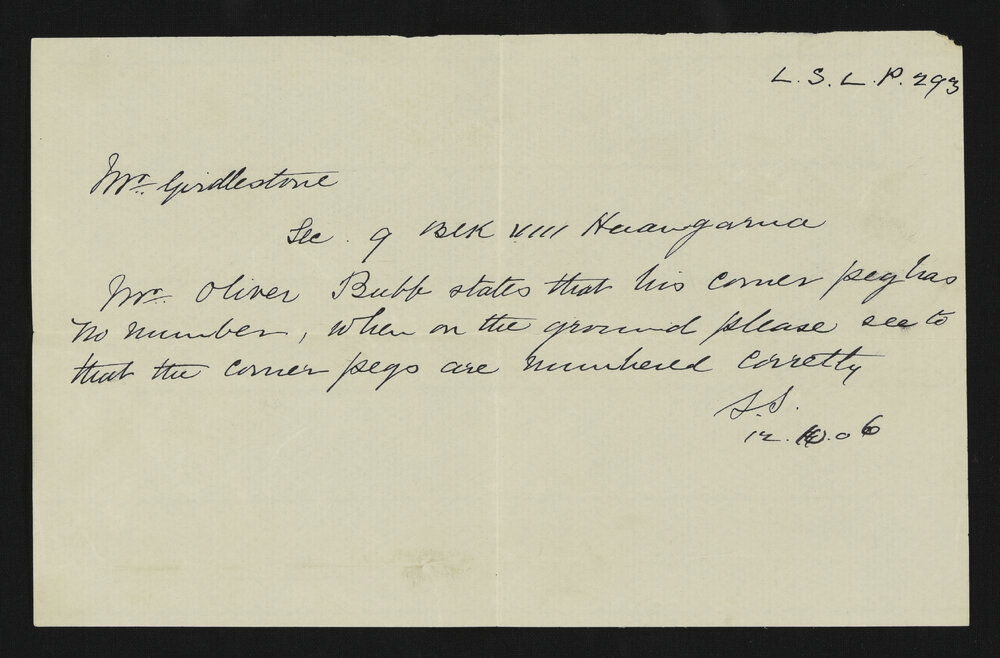 L. S. L. P. 293
Mr. Girdlestone
Sec. 9 Blk VIII Huangarua
Mr. Oliver Bubb states that his corner peg has
no number, when on the ground please see to
that the corner pegs are numbered corretly
S.S.
12.10.06